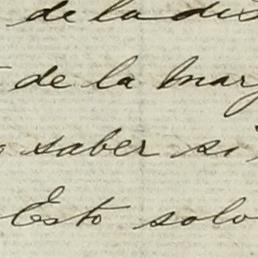 de la dis
de la mar
saber si
Esto solo